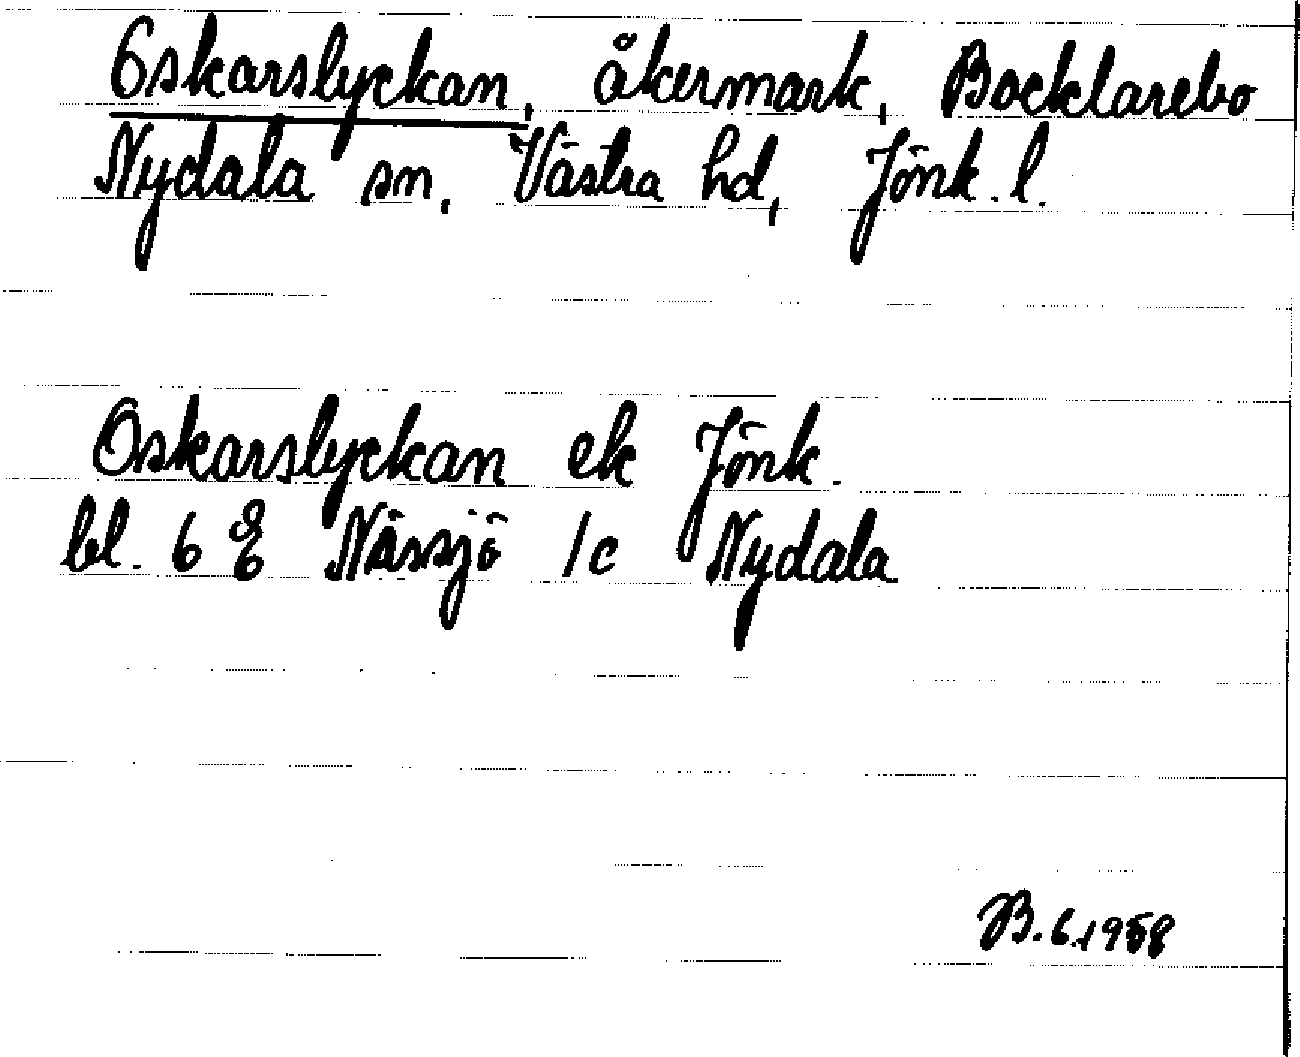 Oskarslyckan, åkermark, Bocklarebo
Nydala sn, Västra hd, Jönk. l.
Oskarslyckan ek Jönk.
bl. 6 E Nässjö 1c Nydala
B. 6.1958